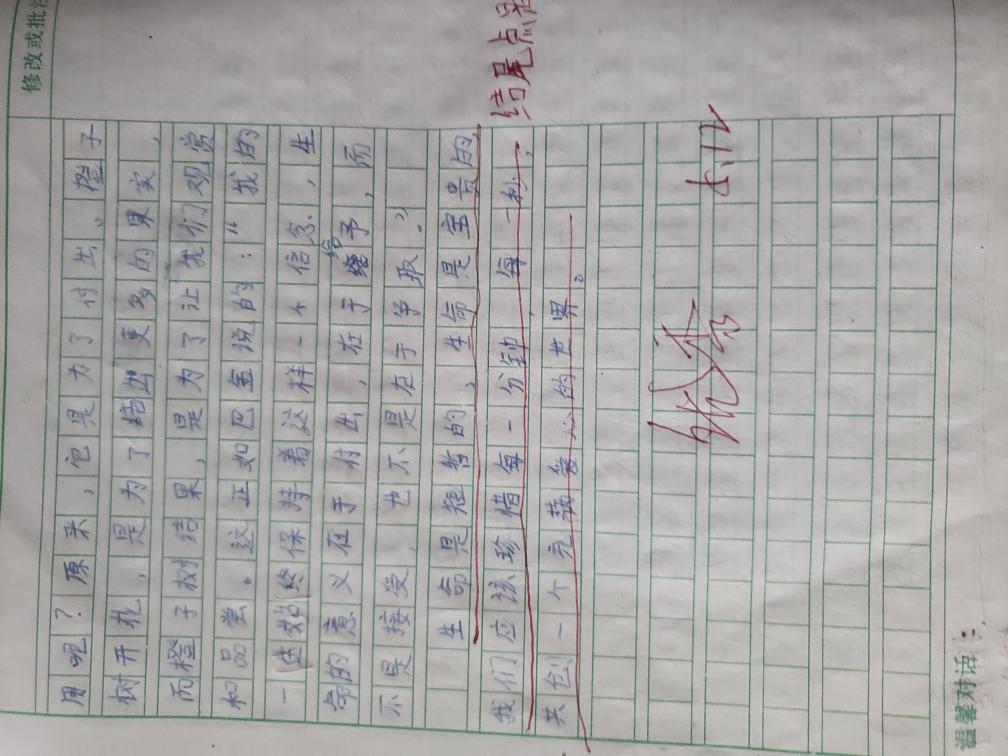 修改或批注
用呢？原来，它是为了付出。橙子
树开花，是为了结出更多的果实，
而橙子树结果，是为了让我们观赏
和品尝。这正如巴金说的：“我的
一生始终保持着这样一个信念，生
命的意义在于付出，在于给予，而
不是接受，也不是在于争取。”
生命是短暂的，生命是宝贵的，
我们应该珍惜每一分钟，每一秒，
共创一个充满爱心的世界。
结尾点
优秀
5.12
温馨对话：